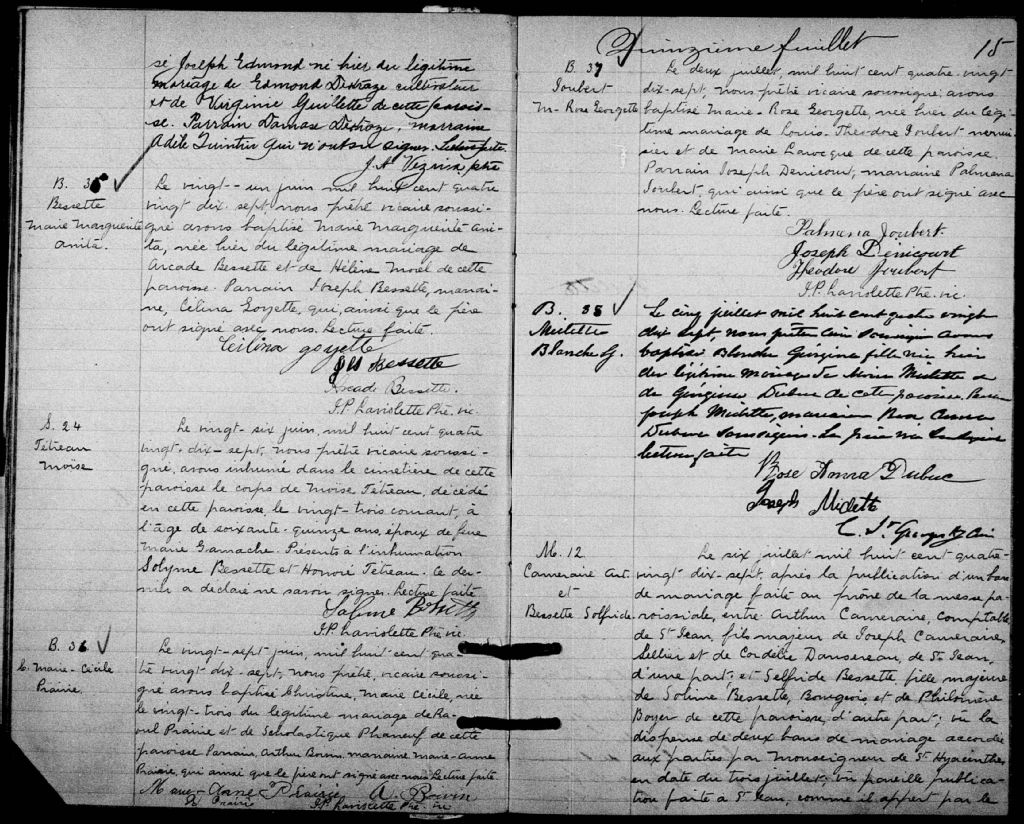 sé Joseph Edmond né hier du légitime
mariage de Edmond cultivateur
et de Virginie Guillette de cette parois-
se. Parrain Damase marraine
Adèle Quintin qui n'ont su signer. Lecture faite.
J.A. Vézina ptre
B. 35
Bessette
Marie Marguerite
Anita.
Le vingt-un juin mil huit cent quatre
vingt dix-sept nous prêtre vicaire soussi-
gné avons baptisé Marie Marguerite Ani-
ta, née hier du légitime mariage de
Arcade Bessette et de Hélène Noël de cette
paroisse. Parrain Joseph Bessette, marrai-
ne, Célina Goyette, qui, ainsi que le père
ont signé avec nous. Lecture faite.
Célina goyette
Jos Bessette
Arcade Bessette.
J.P. Laviolette Ptre. vic.
S. 24
Tétreau
Moïse
Le vingt-six juin, mil huit cent quatre
vingt-dix-sept, nous prêtre vicaire soussi-
gné, avons inhumé dans le cimetière de cette
paroisse le corps de Moïse Tétreau, décédé
en cette paroisse, le vingt-trois courant, à
l'âge de soixante-quinze ans, époux de feue
Marie Gamache. Présents à l'inhumation
Solyme Bessette et Honoré Tétreau. Ce der-
nier a déclaré ne savoir signer. Lecture faite
J.P. Laviolette Ptre. vic.
B. 36
C. Marie-Cécile
Prairie.
Le vingt-sept juin, mil huit cent qua-
tre vingt dix-sept, nous prêtre, vicaire soussi-
gné avons baptisé Christine, Marie Cécile, née
le vingt-trois du légitime mariage de Ra-
oul Prairie et de Scholastique Phaneuf de cette
paroisse Parrain, Arthur Bovin, marraine Marie-Anne
Prairie, qui ainsi que le père ont signé avec nous Lecture faite
Anne Prairie A. Bovin
R Prairie J.P. Laviolette Ptre. vic
Quinzième feuillet 15
B. 37
Joubert
M. Rose Georgette
Le deux juillet, mil huit cent quatre-vingt
dix-sept, nous prêtre vicaire soussigné, avons
baptisé Marie-Rose Georgette, née hier du légi-
time mariage de Louis-Théodore Joubert menui-
sier et de Marie Larocque de cette paroisse.
Parrain Joseph Denicourt, marraine Palmaria
Joubert, qui ainsi que le père ont signé avec
nous. Lecture faite.
Palmaria Joubert
Joseph Dénicourt
Théodore Joubert
J.P. Laviolette Ptre. vic.
B. 38
Midette
Blanche G.
Le cinq juillet mil huit cent quatre vingt
dix sept, nous prêtre curé soussigné avons
baptisé Blanche Géorgina fille née hier
du légitime mariage de Moïse Midette et
de Géorgina Dubuc de cette paroisse. Parrain
Joseph Midette, marraine Rose Anna
Dubuc soussignés. Le père
lecture faite
Rose Anna Dubuc
Joseph Midette
C. St Georges Ptre Curé
M. 12
Cameraire Art.
et
Bessette Selfride.
Le six juillet mil huit cent quatre-
vingt dix-sept, après la publication d'un ban
de mariage faite au prône de la messe pa-
roissiale, entre Arthur Cameraire, Comptable,
de St Jean, fils majeur de Joseph Cameraire,
Sellier et de Cordélie Dansereau, de St Jean,
d'une part; et Selfride Bessette fille majeure
de Solime Bessette, Bourgeois et de Philomène
Boyer de cette paroisse, d'autre part; vu la
dispense de deux bans de mariage accordée
aux parties par Monseigneur de St Hyacinthe,
en date du trois juillet, vu pareille publica-
tion faite à St Jean, comme il appert par le